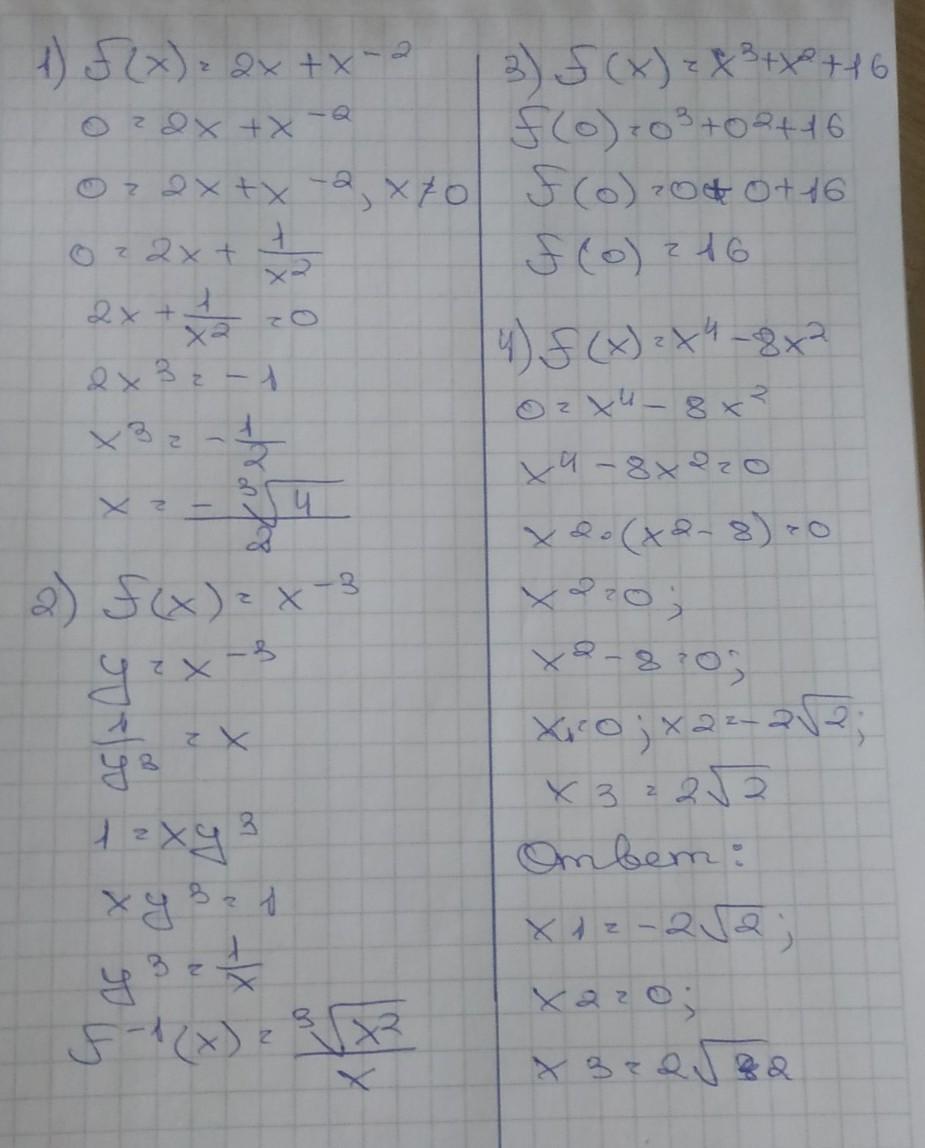 1) f(x) = 2x + x⁻²
0 = 2x + x⁻²
0 = 2x + x⁻², x ≠ 0
0 = 2x + 1/x²
2x + 1/x² = 0
2x³ = -1
x³ = -1/2
x = -∛4/2
2) f(x) = x⁻³
y = x⁻³
1/y³ = x
1 = xy³
xy³ = 1
y³ = 1/x
f⁻¹(x) = ∛x²/x
3) f(x) = x³ + x² + 16
f(0) = 0³ + 0² + 16
f(0) = 0 + 0 + 16
f(0) = 16
4) f(x) = x⁴ - 8x²
0 = x⁴ - 8x²
x⁴ - 8x² = 0
x² · (x² - 8) = 0
x² = 0;
x² - 8 = 0;
x₁ = 0; x2 = -2√2;
x3 = 2√2
Ответ:
x1 = -2√2;
x2 = 0;
x3 = 2√2